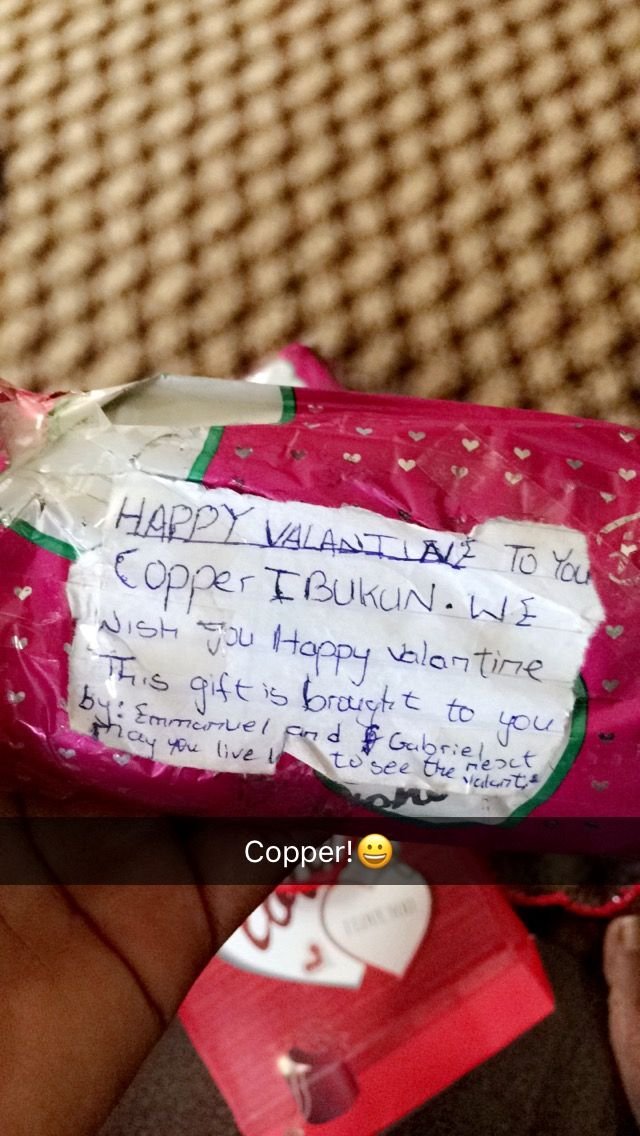 HAPPY VALANTINE TO YOU
Copper IBUKUN. WE
Wish you Happy valantine
This gift is brought to you
by: Emmanuel and Gabriel
May you live to see the next
valanti
Copper!😀